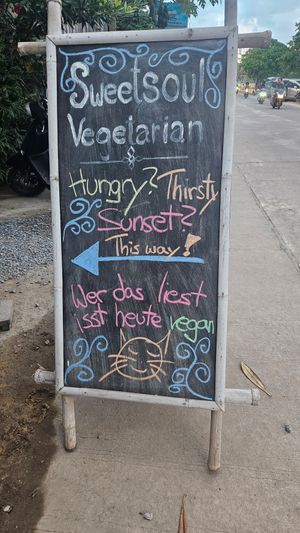 Sweetsoul
Vegetarian
&
Hungry? Thirsty
Sunset?
This way!
Wer das liest
isst heute vegan